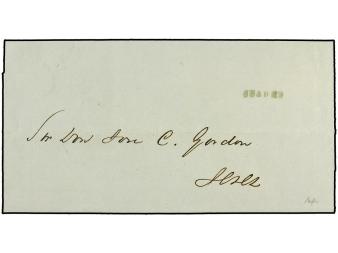 Sor Don Jose C. Gordon
Jerez